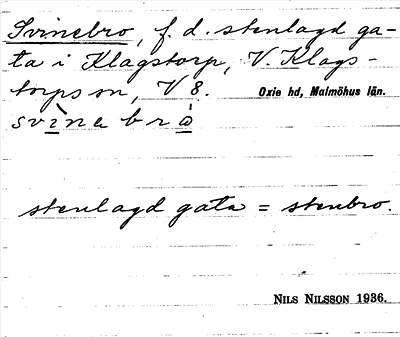 Svinebro, f. d. stenlagd ga-
ta i Klagstorp, V. Klags-
torps sn, V 8. Oxie hd, Malmöhus län.
svìnebrò
stenlagd gata = stenbro.
NILS NILSSON 1936.